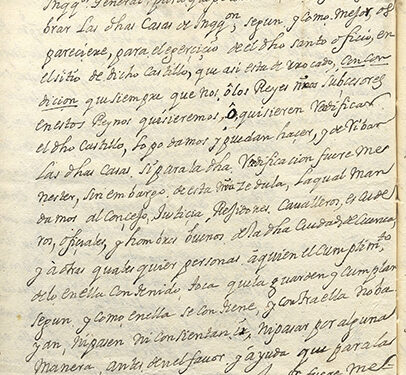 Inqq.or General, para que pued
brar Las dhas Casas de Inqq.on, segun, y como, Mejor, os
pareciere, para el exercicio de el dho santo oficio, en
el sitio de dicho Castillo, que asi esta derrocado, con con
dicion, que siempre que nos, o los Reyes nros subcesores
en estos Reynos quisieremos, ô quisieren redificar
el dho Castillo, Lo podamos, y puedan hacer, y derribar
Las dhas Casas, si para la dha redificacion fuere me
nester, sin embargo, de esta nra zedula, La qual man
damos al Concejo, Justicia, Rejidores, Cavalleros, escude
ros, ofiçiales, y hombres buenos de la dha Ciudad de Cuenca,
y à otras quales quier personas à quien el Cumplimto
de lo en ella Contenido toca que la guarden y Cumplan
segun, y como en ella se contiene, y contra ella no ba
yan, ni pasen ni Consientan ir, ni pasar por alguna
Manera, antes den el favor y ayuda que para la
fuere me